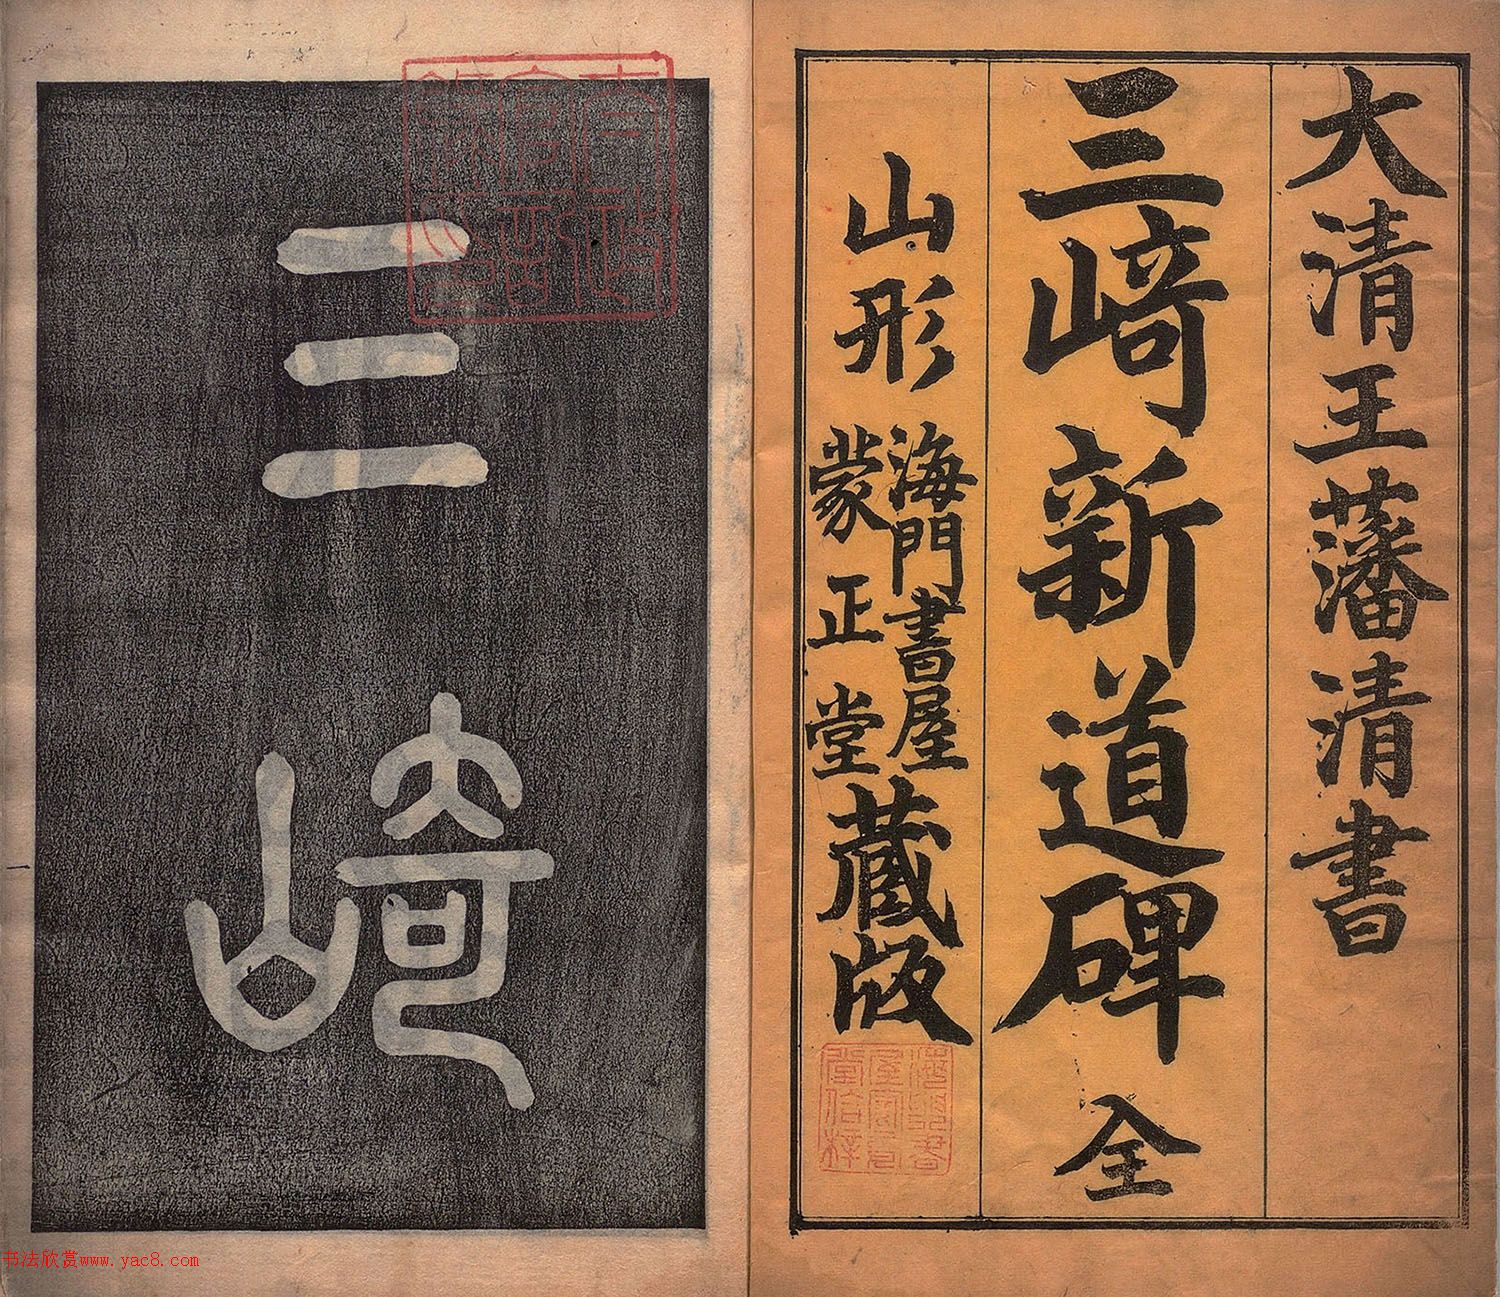 大清王藩清書
三﨑新道碑 全
山形 海門書屋
蒙正堂 藏版
三﨑
书法欣赏www.yac8.com